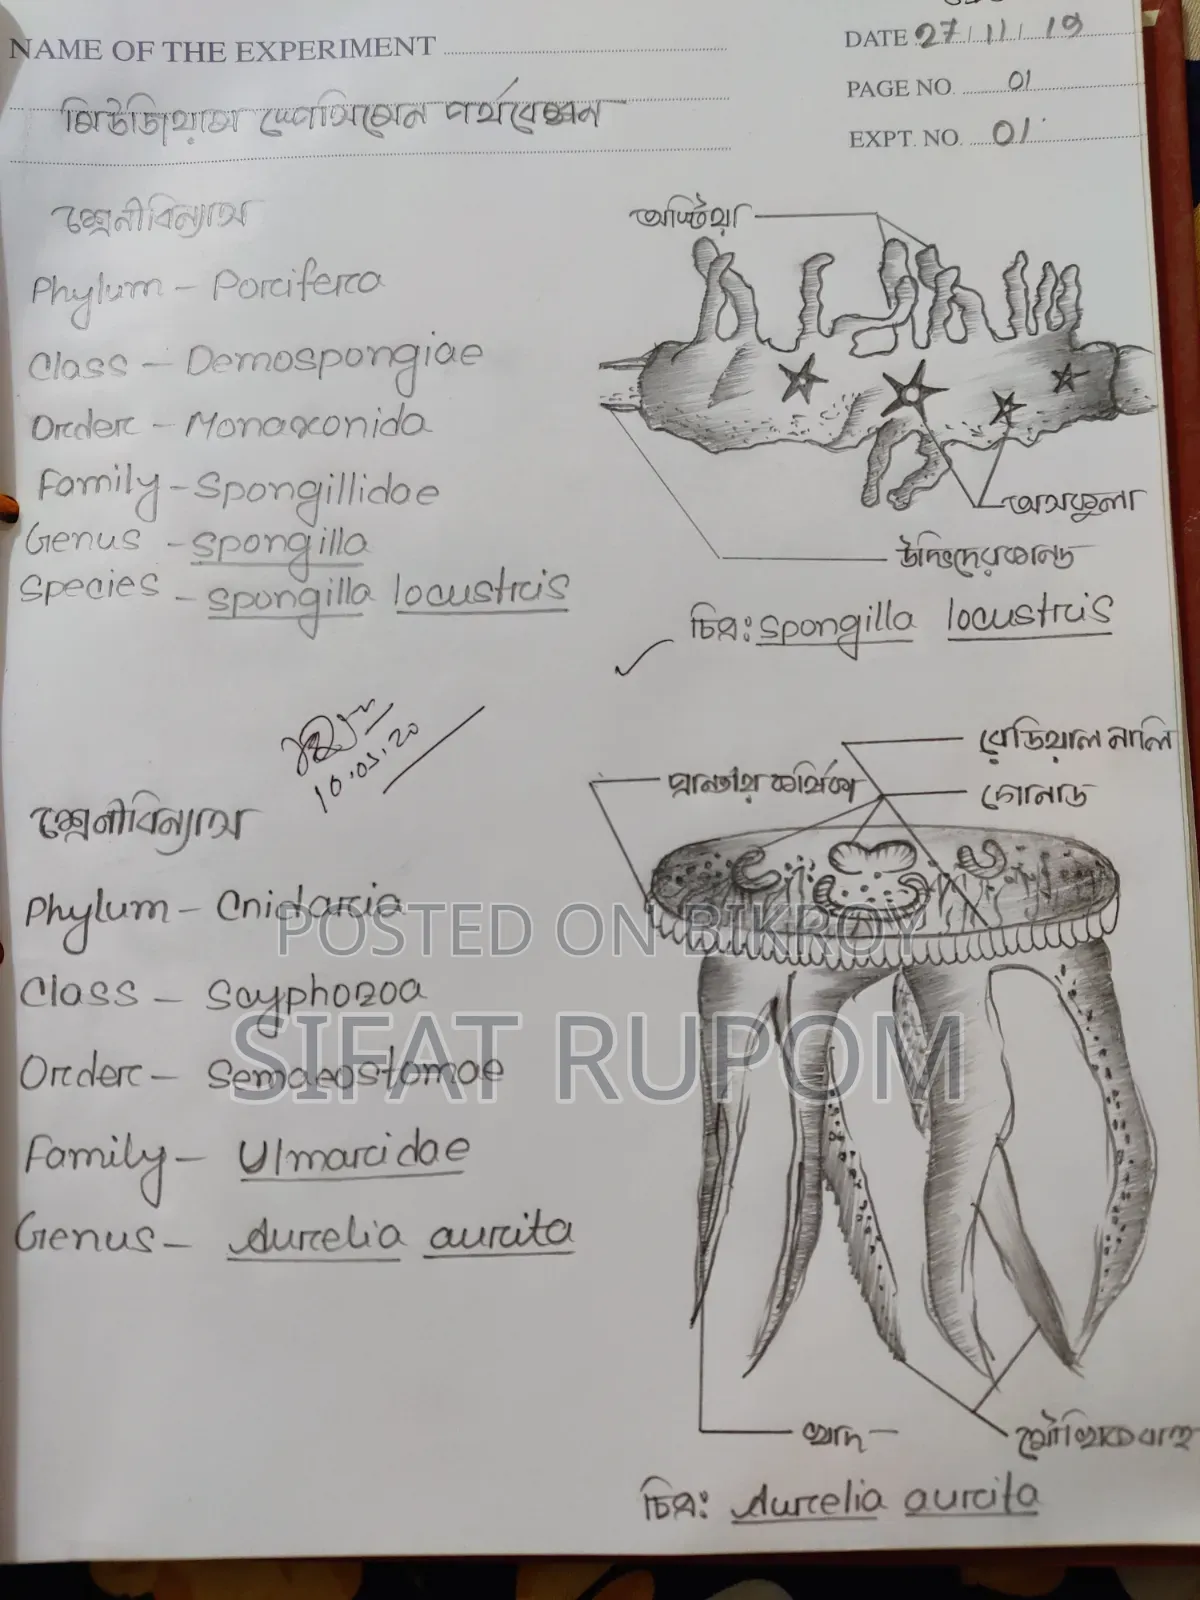 NAME OF THE EXPERIMENT
DATE 27/11/19
PAGE NO. 01
EXPT. NO. 01
মিউজিয়াম স্পেসিমেন পর্যবেক্ষন
শ্রেনীবিন্যাস
Phylum - Porifera
Class - Demospongiae
Order - Monaxonida
Family - Spongillidae
Genus - Spongilla
Species - Spongilla locustris
অস্টিয়া
অসকুলা
উদ্ভিদের কান্ড
চিত্র: Spongilla locustris
10.03.20
শ্রেনীবিন্যাস
Phylum - Cnidaria
Class - Scyphozoa
Order - Semaeostomae
Family - Ulmaridae
Genus - Aurelia aurita
রেডিয়াল নালি
প্রান্তীয় কর্ষিকা
গোনাড
মৌখিক বাহু
চিত্র: Aurelia aurita
POSTED ON BIKROY
SIFAT RUPOM